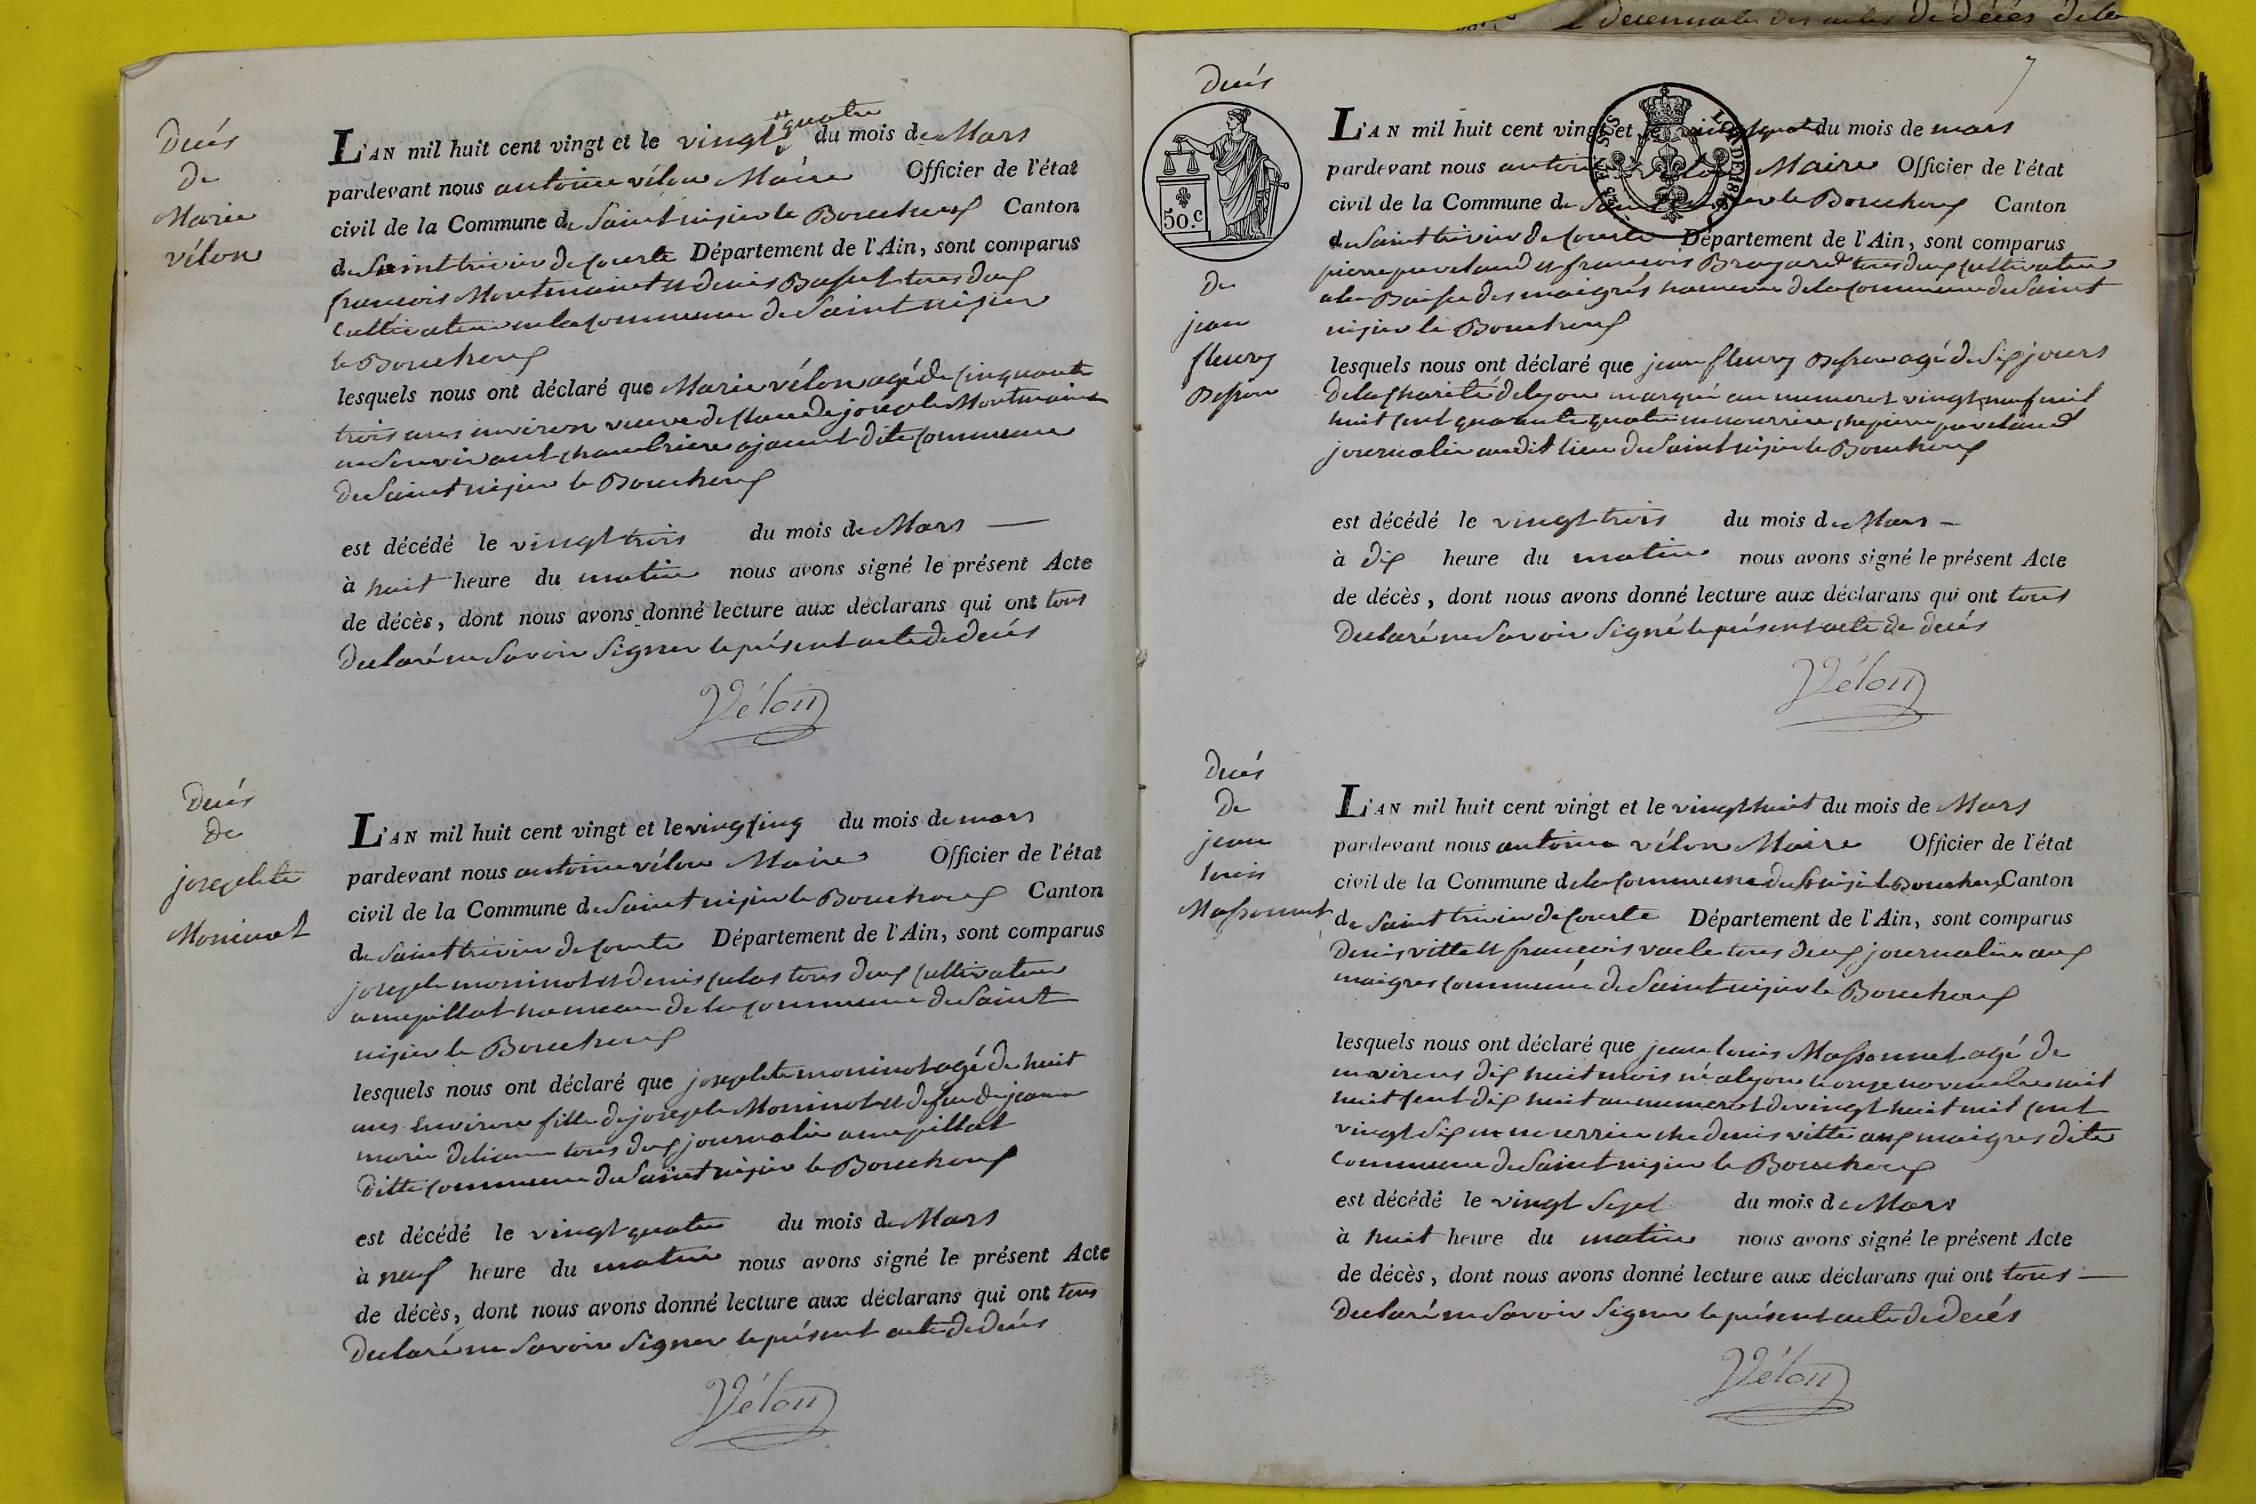 Decennale des actes de décés de la
Decés
de
Marie
vélon
L'AN mil huit cent vingt et le vingt quatre du mois de Mars
pardevant nous antoine vélon Maire Officier de l'état
civil de la Commune de Saint nizier le Bouchoux Canton
de Saint trivier de Courte Département de l'Ain, sont comparus
francois Montmain et denis Basset tous deux
Cultivateur en la Commune de Saint nizier
le Bouchoux
lesquels nous ont déclaré que Marie vélon agé de Cinquante
trois ans environ veuve de Claude joseph Montmain
en Son vivant chambriere dite Commune
de Saint nizier le Bouchoux
est décédé le vingt trois du mois de Mars —
à huit heure du matin nous avons signé le présent Acte
de décès, dont nous avons donné lecture aux déclarans qui ont tous
Declaré ne Savoir Signer le présent acte de decés
Vélon
Decés
de
josephte
Moninot
L'AN mil huit cent vingt et le vingt cinq du mois de mars
pardevant nous antoine vélon Maire Officier de l'état
civil de la Commune de Saint nizier le Bouchoux Canton
de Saint trivier de Courte Département de l'Ain, sont comparus
joseph moninot et denis tous deux Cultivateur
a mepillat hameau de la Commune de Saint
nizier le Bouchoux
lesquels nous ont déclaré que josephte moninot agé de huit
ans Environ fille de joseph Moninot et de jeanne
marie tous deux journalier a mepillat
ditte Commune de Saint nizier le Bouchoux
est décédé le vingt quatre du mois de Mars
à neuf heure du matin nous avons signé le présent Acte
de décès, dont nous avons donné lecture aux déclarans qui ont tous
Declaré ne Savoir Signer le présent acte de decés
Vélon
7
Decés
50.c
de
jean
fleury
Besson
LOI DE 1816
L'AN mil huit cent vingt et le vingt quatre du mois de mars
pardevant nous antoine vélon Maire Officier de l'état
civil de la Commune de Saint nizier le Bouchoux Canton
de Saint trivier de Courte Département de l'Ain, sont comparus
pierre et francois tous deux Cultivateur
a la Baisse des maigres hameau de la Commune de Saint
nizier le Bouchoux
lesquels nous ont déclaré que jean fleury Besson agé de Six jours
de la Charité de lyon marqué au numerot vingt neuf mil
huit Cent quarante quatre en nourrice chez pierre
journalier audit lieu de Saint nizier le Bouchoux
est décédé le vingt trois du mois de Mars —
à dix heure du matin nous avons signé le présent Acte
de décès, dont nous avons donné lecture aux déclarans qui ont tous
Declaré ne Savoir Signé le présent acte de decés
Vélon
Decés
De
jean
louis
Massonnet
L'AN mil huit cent vingt et le vingt huit du mois de Mars
pardevant nous antoine vélon Maire Officier de l'état
civil de la Commune de la Commune de St nizier le Bouchoux Canton
de Saint trivier de Courte Département de l'Ain, sont comparus
Denis vitte et francois vacle tous deux journalier aux
maigres Commune de Saint nizier le Bouchoux
lesquels nous ont déclaré que jean louis Massonnet agé de
environs dix huit mois né a lyon le onze novembre mil
huit Cent dix huit au numerot de vingt huit mil Cent
vingt Six en nourrice che denis vitte aux maigres dite
Commune de Saint nizier le Bouchoux
est décédé le vingt Sept du mois de Mars
à huit heure du matin nous avons signé le présent Acte
de décès, dont nous avons donné lecture aux déclarans qui ont tous —
Declaré ne Savoir Signer le présent acte de decés
Vélon